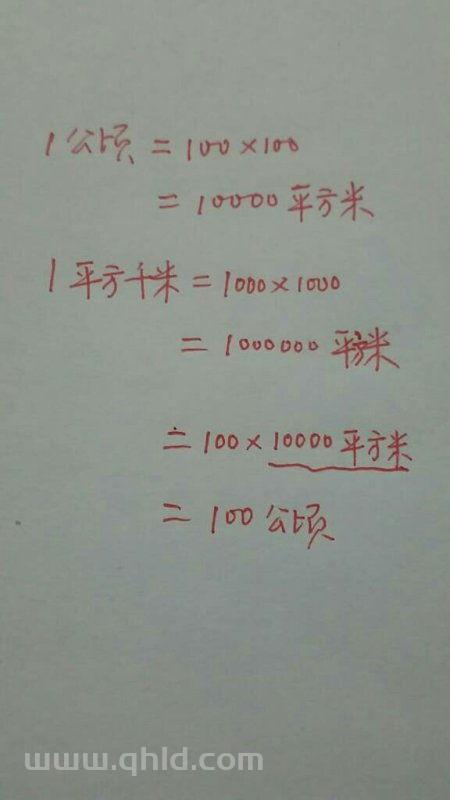 1公顷=100×100
=10000平方米
1平方千米=1000×1000
=1000000平方米
=100×10000平方米
=100公顷
www.qhld.com